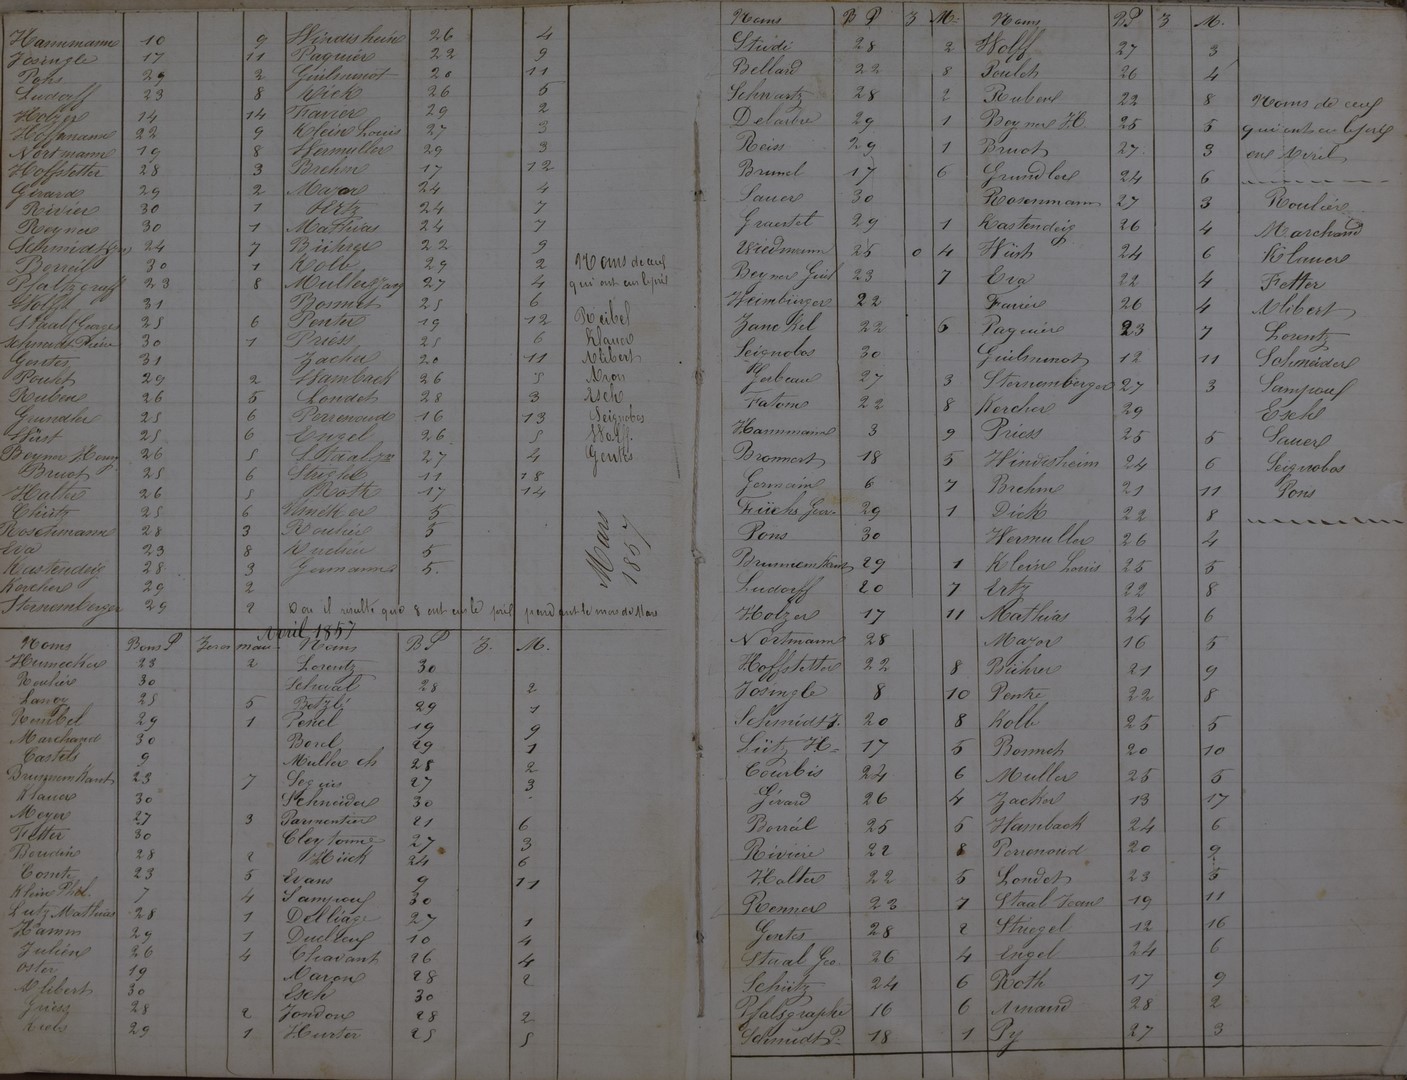 Hannmann 10 9 Windisheim 26 4
Josingle 17 11 Paquier 22 9
Pons 29 2 Guilminot 20 11
Ludorff 23 8 Dick 26 5
Holzer 14 14 29 2
Hoffmann 22 9 Klein Louis 27 3
Nortmann 19 8 Wermuller 29 3
Hoffstetter 28 3 Brehm 17 12
Girard 29 2 Major 24 4
Rivier 30 1 Ertz 24 7
Reyner 30 1 Mathias 24 7
Schmidt 24 7 Bühre 22 9
Borreil 30 1 Kolb 29 2
Pfaltzgraff 23 8 Muller 27 4
Wolff 31 Bonnet 25 6
Staal Georges 25 6 Penter 19 12
Schmidt 30 1 Priess 25 6
Gerster 31 Zacker 20 11
29 2 Wamback 26 5
Rubin 26 5 Londot 28 3
Grundler 25 6 Perrenoud 16 13
Wüst 25 6 Engel 26 5
Beyner Henry 26 5 Staal 27 4
Bruot 25 6 11 18
Halter 26 5 Roth 17 14
25 6 5
Rosenmann 28 3 Roulier 5
Eva 23 8 5
Kastendeig 28 3 Germann 5.
Kercher 29 2
Sternemberger 29 2
Noms de ceux
qui ont eu le prix
Reibel
Klauer
Alibert
Esch
Seignobos
Wolff.
Gerster
Mars
1857
D'ou il resulte que 8 ont eu le prix pendant le mois de Mars
Avril 1857
Noms Bons P Zeros mau Noms B P Z. M.
Hunecker 23 2 Lorentz 30
Roulier 30 28 2
25 5 29 1
29 1 19 9
Marchand 30 Borel 29 1
Castels 9 Muller ch 28 2
Brunnenkant 23 7 27 3
Klauer 30 Schneider 30
Meyer 27 3 Parmentier 21 6
Fetter 30 27 3
28 2 24 6
Comte 23 5 Evans 9 11
Klein Phil. 7 4 Sampoux 30
Lutz Mathias 28 1 Delliage 27 1
Hamm 29 1 10 4
Julien 26 4 Chavant 26 4
Oster 19 28 2
Alibert 30 Esch 30
28 2 Jondon 28 2
29 1 Hurter 25 5
Noms B P Z M. Noms BP Z M.
Stüdi 28 2 Wolff 27 3
Bellard 22 8 26 4
Schwartz 28 2 Rubens 22 8
Delarbre 29 1 Beyner H. 25 5
Reiss 29 1 Bruot 27 3
Brunel 17 6 Grundler 24 6
Sauer 30 Rosenmann 27 3
29 1 Kastendeig 26 4
Wiedmann 25 0 4 Wüst 24 6
Beyner Guil 23 7 Eva 22 4
Weimburger 22 Favier 26 4
Janckel 22 6 Paquier 23 7
Seignobos 30 Guilminot 12 11
Gerbeau 27 3 Sternemberger 27 3
Fatome 22 8 Kercher 29
Hannmann 3 9 Priess 25 5
Bronnert 18 5 Windisheim 24 6
Germain 6 7 Brehm 21 11
Füchs Geor. 29 1 Dick 22 8
Pons 30 Wermuller 26 4
Brunnenkant 29 1 Klein Louis 25 5
Ludorff 20 7 Ertz 22 8
Holzer 17 11 Mathias 24 6
Nortmann 28 Major 16 5
Hoffstetter 22 8 Bührer 21 9
Josingle 8 10 Pentre 22 8
Schmidt J. 20 8 Kolb 25 5
Lütz H- 17 5 Bonnet 20 10
Courbis 24 6 Muller 25 5
Gérard 26 4 Zacker 13 17
Borrél 25 5 Hambach 24 6
Rivière 22 8 Perrenoud 20 9
Halter 22 5 Londot 23 5
Renner 23 7 Staal Jean 19 11
Gerter 28 2 Striegel 12 16
Staal Geo. 26 4 Engel 24 6
Schütz 24 6 Roth 17 9
Pfalsgraphe 16 6 Arnaud 28 2
Schmidt P- 18 1 Py 27 3
Noms de ceux
qui ont eu le prix
en Avril
Roulier
Marchand
Klauer
Fetter
Alibert
Lorentz
Schneider
Sampoux
Esch
Sauer
Seignobos
Pons